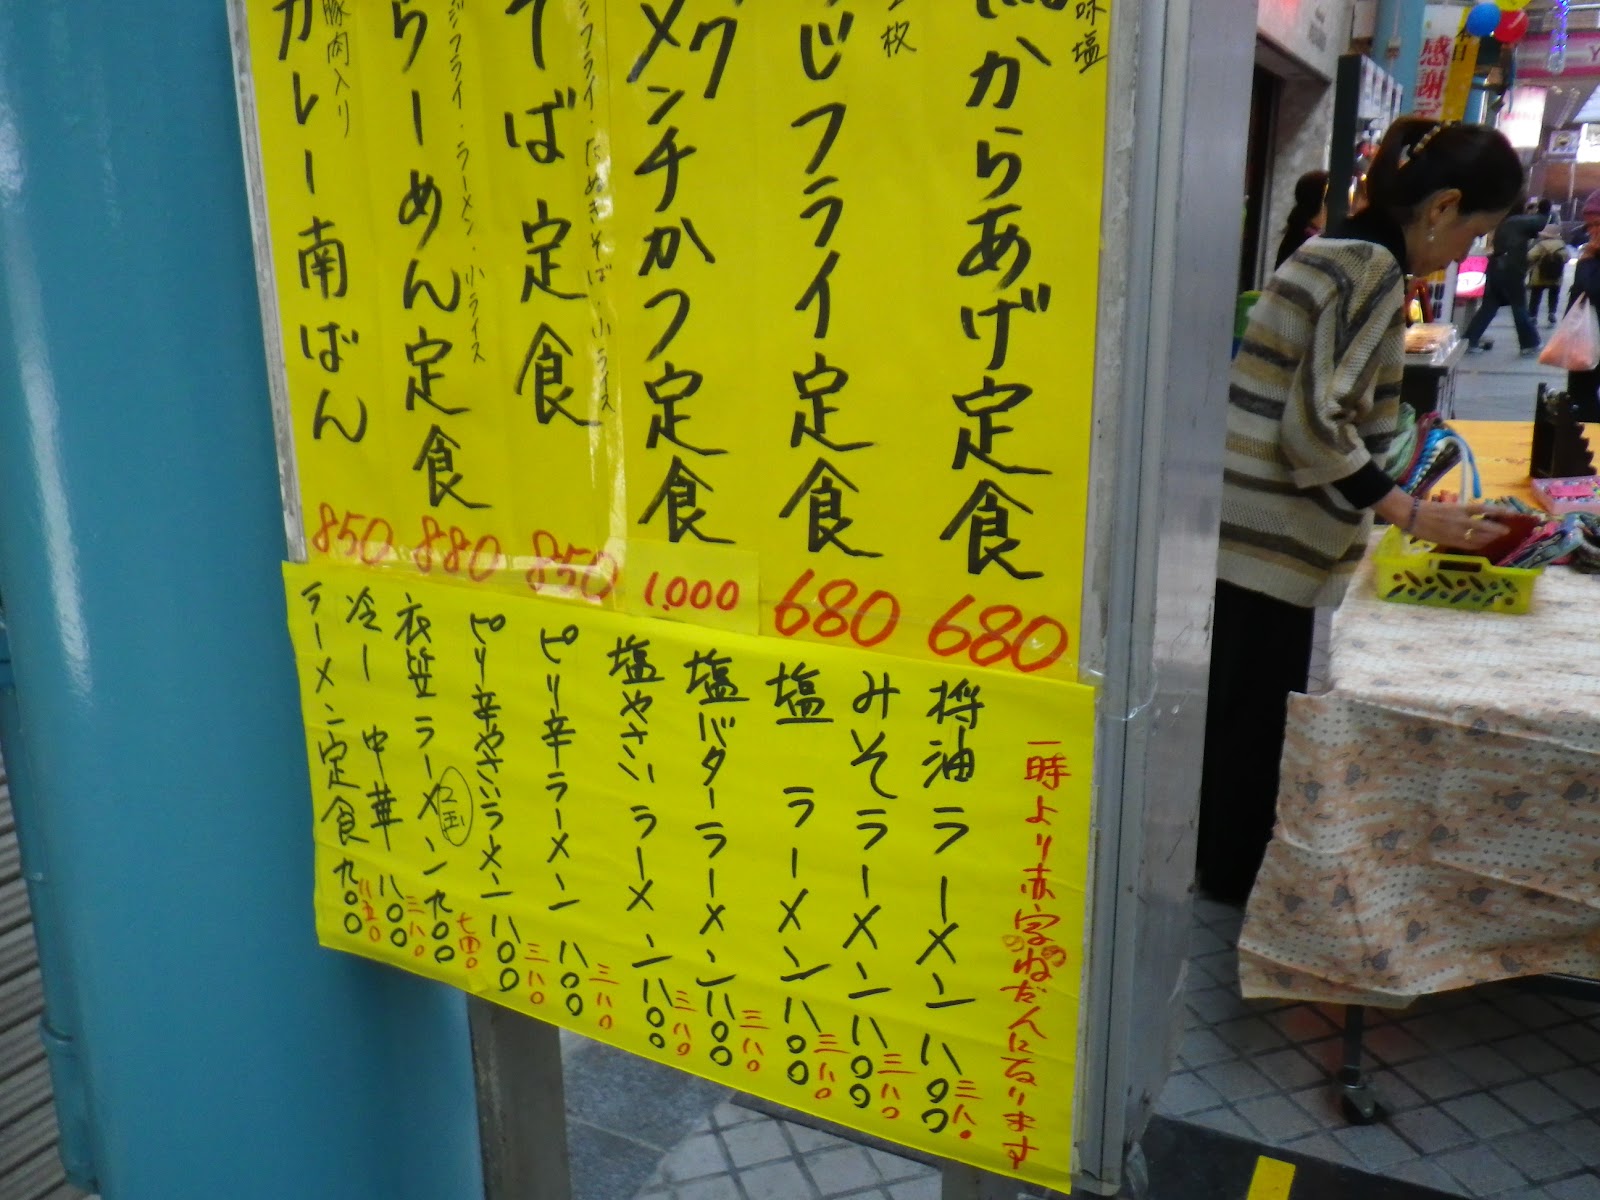 味塩
からあげ定食
680
枚
じフライ定食
680
メンチかつ定食
1.000
そば定食
ジフライ・たぬきそば・小ライス
850
らーめん定食
ジフライ・ラーメン・小ライス
880
カレー南ばん
豚肉入り
850
一時より赤字のねだんになります
醤油ラーメン 八〇〇 三八〇
みそラーメン 八〇〇 三八〇
塩ラーメン 八〇〇 三八〇
塩バターラーメン 八〇〇 三八〇
塩やさいラーメン 八〇〇 三八〇
ピリ辛ラーメン 八〇〇 三八〇
ピリ辛やさいラーメン 八〇〇 三八〇
衣笠ラーメン 九〇〇 七四〇
冷し中華 八〇〇 三八〇
ラーメン定食 九〇〇 八五〇
感謝